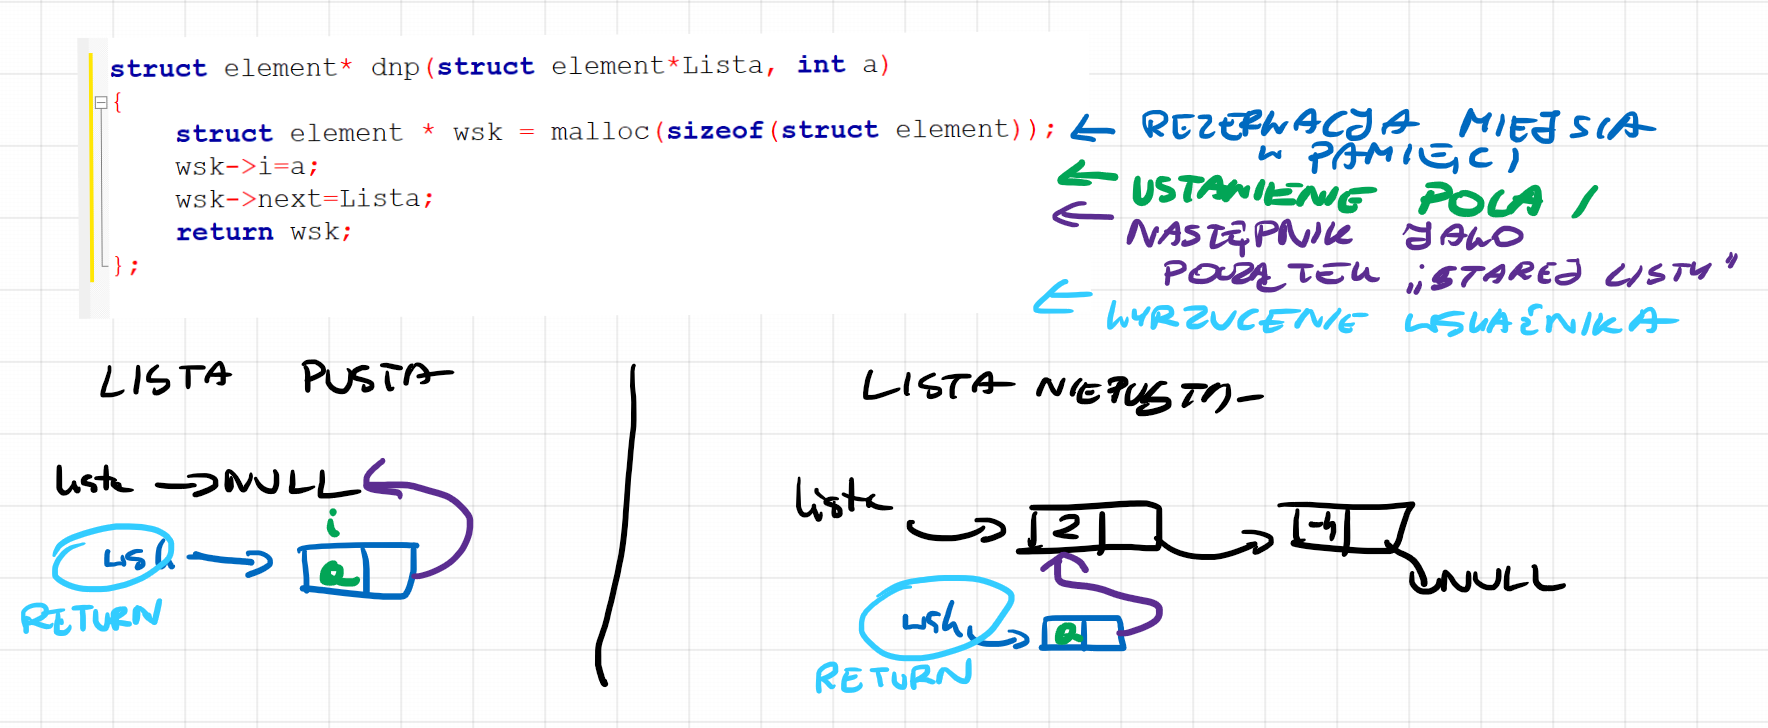 struct element* dnp(struct element*Lista, int a)
{
struct element * wsk = malloc(sizeof(struct element));
wsk->i=a;
wsk->next=Lista;
return wsk;
};
← REZERWACJA MIEJSCA
W PAMIĘCI
← USTAWIENIE POLA i
← NASTĘPNIK JAKO
POCZĄTEK „STAREJ LISTY"
← WYRZUCENIE WSKAŹNIKA
LISTA PUSTA
LISTA NIEPUSTA
lista → NULL
i
wsk → a
RETURN
lista → 2 → -4 → NULL
wsk → a
RETURN